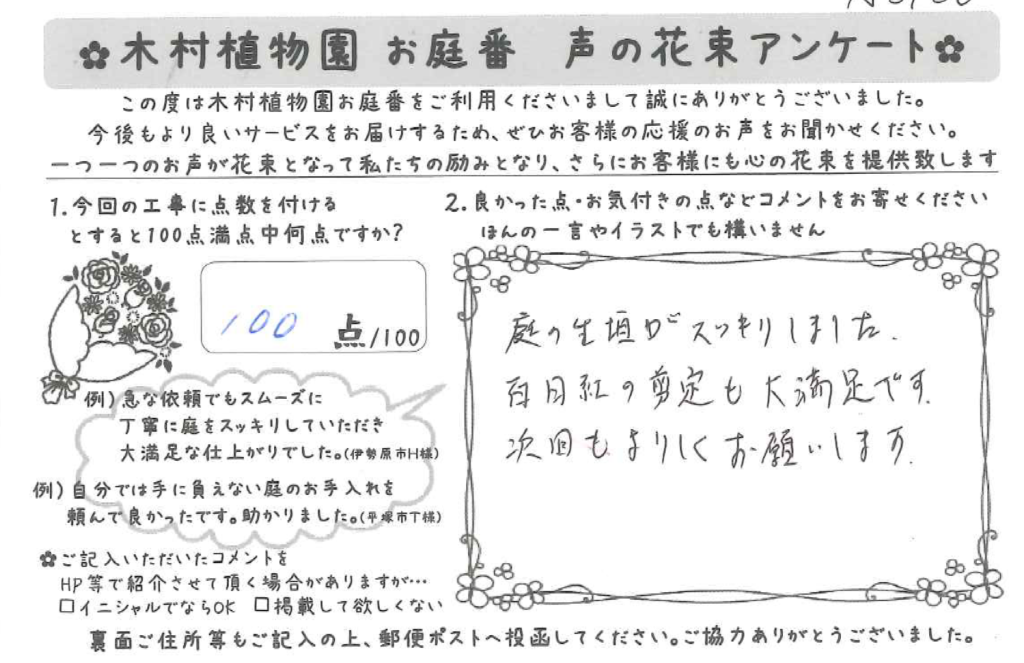 ✿木村植物園 お庭番 声の花束アンケート✿
この度は木村植物園お庭番をご利用くださいまして誠にありがとうございました。
今後もより良いサービスをお届けするため、ぜひお客様の応援のお声をお聞かせください。
一つ一つのお声が花束となって私たちの励みとなり、さらにお客様にも心の花束を提供致します
1.今回の工事に点数を付ける
とすると100点満点中何点ですか?
100 点/100
例)急な依頼でもスムーズに
丁寧に庭をスッキリしていただき
大満足な仕上がりでした。(伊勢原市H様)
例)自分では手に負えない庭のお手入れを
頼んで良かったです。助かりました。(平塚市T様)
✿ご記入いただいたコメントを
HP等で紹介させて頂く場合がありますが…
□イニシャルでならOK □掲載して欲しくない
2.良かった点・お気付きの点などコメントをお寄せください
ほんの一言やイラストでも構いません
庭の生垣がスッキリしました.
百日紅の剪定も大満足です.
次回もよりしくお願いします.
裏面ご住所等もご記入の上、郵便ポストへ投函してください。ご協力ありがとうございました。